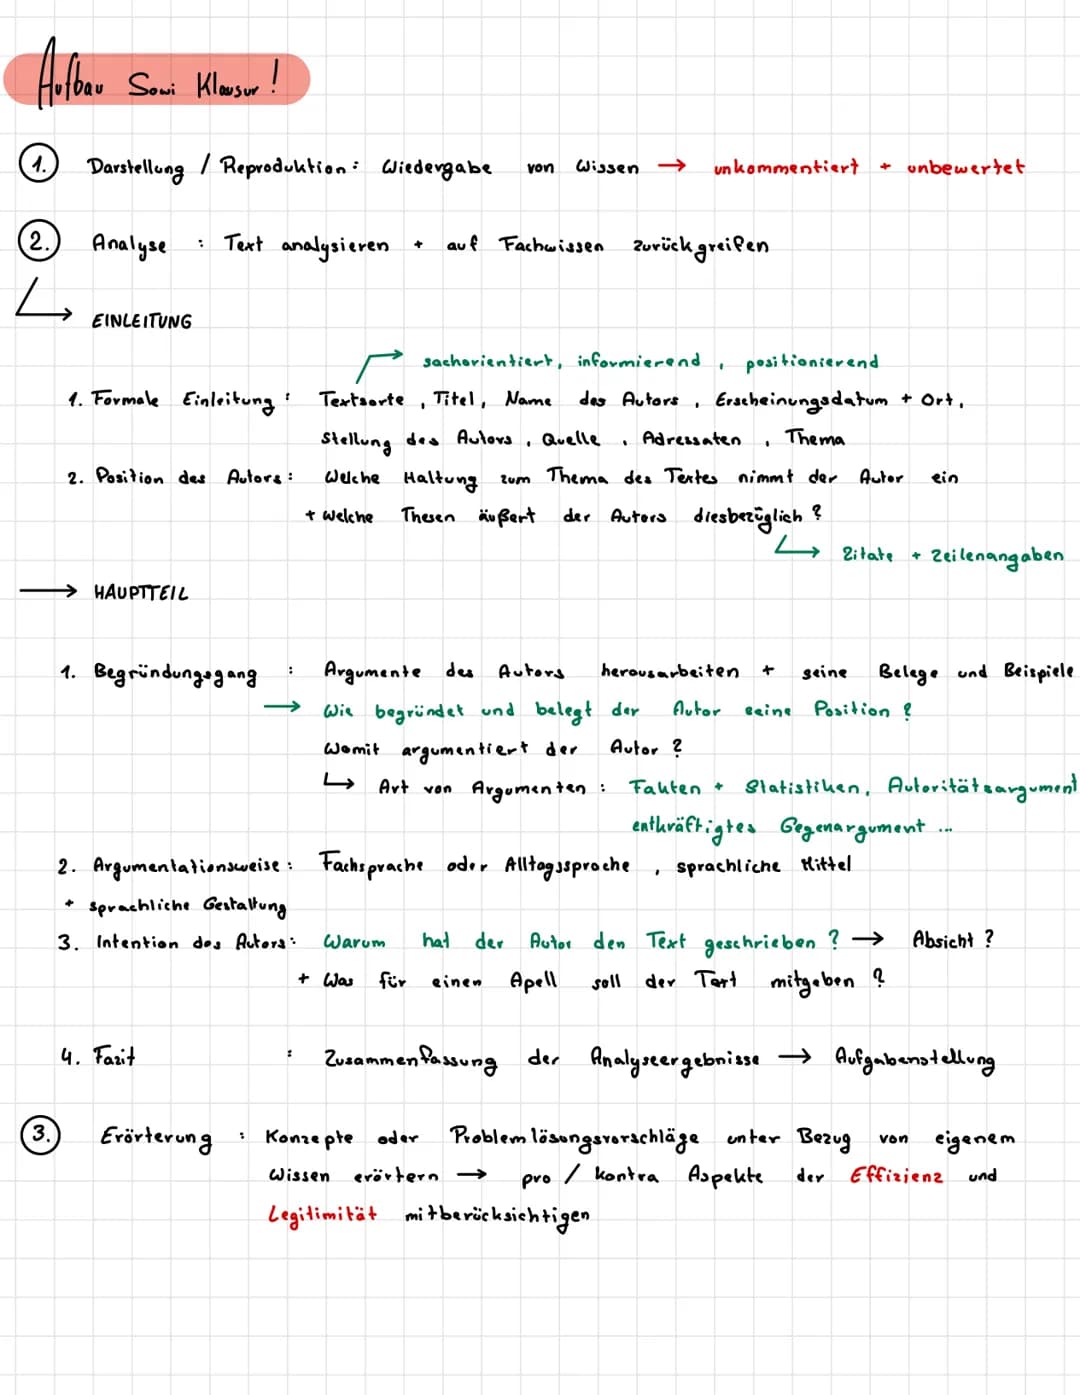 Aufbau Sowi Klausur!
1. Darstellung / Reproduktion: Wiedergabe von Wissen → unkommentiert + unbewertet
2. Analyse : Text analysieren + auf Fachwissen zurückgreifen
↳ EINLEITUNG
sachorientiert, informierend, positionierend
1. Formale Einleitung: Textsorte, Titel, Name des Autors, Erscheinungsdatum + Ort,
Stellung des Autors, Quelle, Adressaten, Thema
2. Position des Autors: Welche Haltung zum Thema des Textes nimmt der Autor ein
+ welche Thesen äußert der Autors diesbezüglich?
↳ Zitate + Zeilenangaben
→ HAUPTTEIL
1. Begründungsgang : Argumente des Autors herausarbeiten + seine Belege und Beispiele
→ Wie begründet und belegt der Autor seine Position?
Womit argumentiert der Autor?
↳ Art von Argumenten: Fakten + Statistiken, Autoritätsargument
entkräftigtes Gegenargument ...
2. Argumentationsweise: Fachsprache oder Alltagssprache, sprachliche Mittel
+ sprachliche Gestaltung
3. Intention des Autors: Warum hat der Autor den Text geschrieben? → Absicht?
+ Was für einen Apell soll der Text mitgeben?
4. Fazit : Zusammenfassung der Analyseergebnisse → Aufgabenstellung
3. Erörterung : Konzepte oder Problemlösungsvorschläge unter Bezug von eigenem
Wissen erörtern → pro / kontra Aspekte der Effizienz und
Legitimität mitberücksichtigen